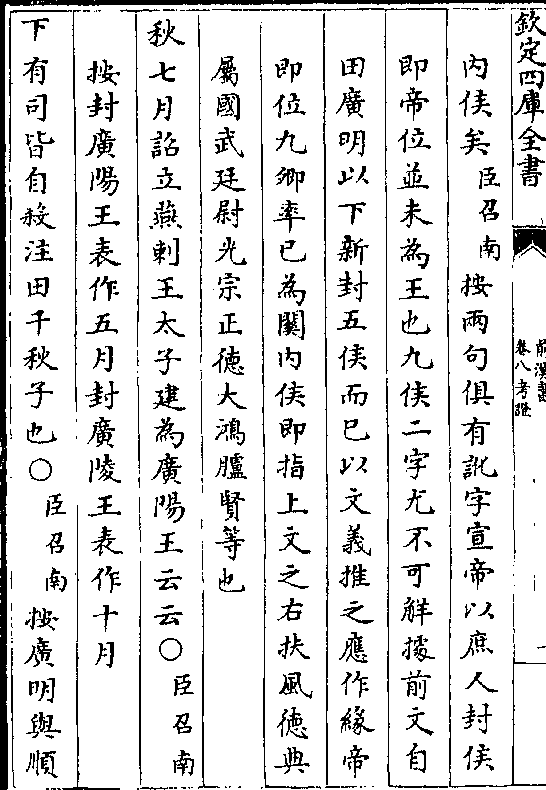 欽定四庫全書
前漢書
卷八考證
內侯矣臣召南按兩句俱有訛字宣帝以庶人封侯
即帝位並未為王也九侯二字尤不可解據前文自
田廣明以下新封五侯而已以文義推之應作緣帝
即位九卿率已為關內侯即指上文之右扶風德典
屬國武廷尉光宗正德大鴻臚賢等也
秋七月詔立燕剌王太子建為廣陽王云云〇臣召南
按封廣陽王表作五月封廣陵王表作十月
下有司皆自殺注田千秋子也〇臣召南按廣明與順